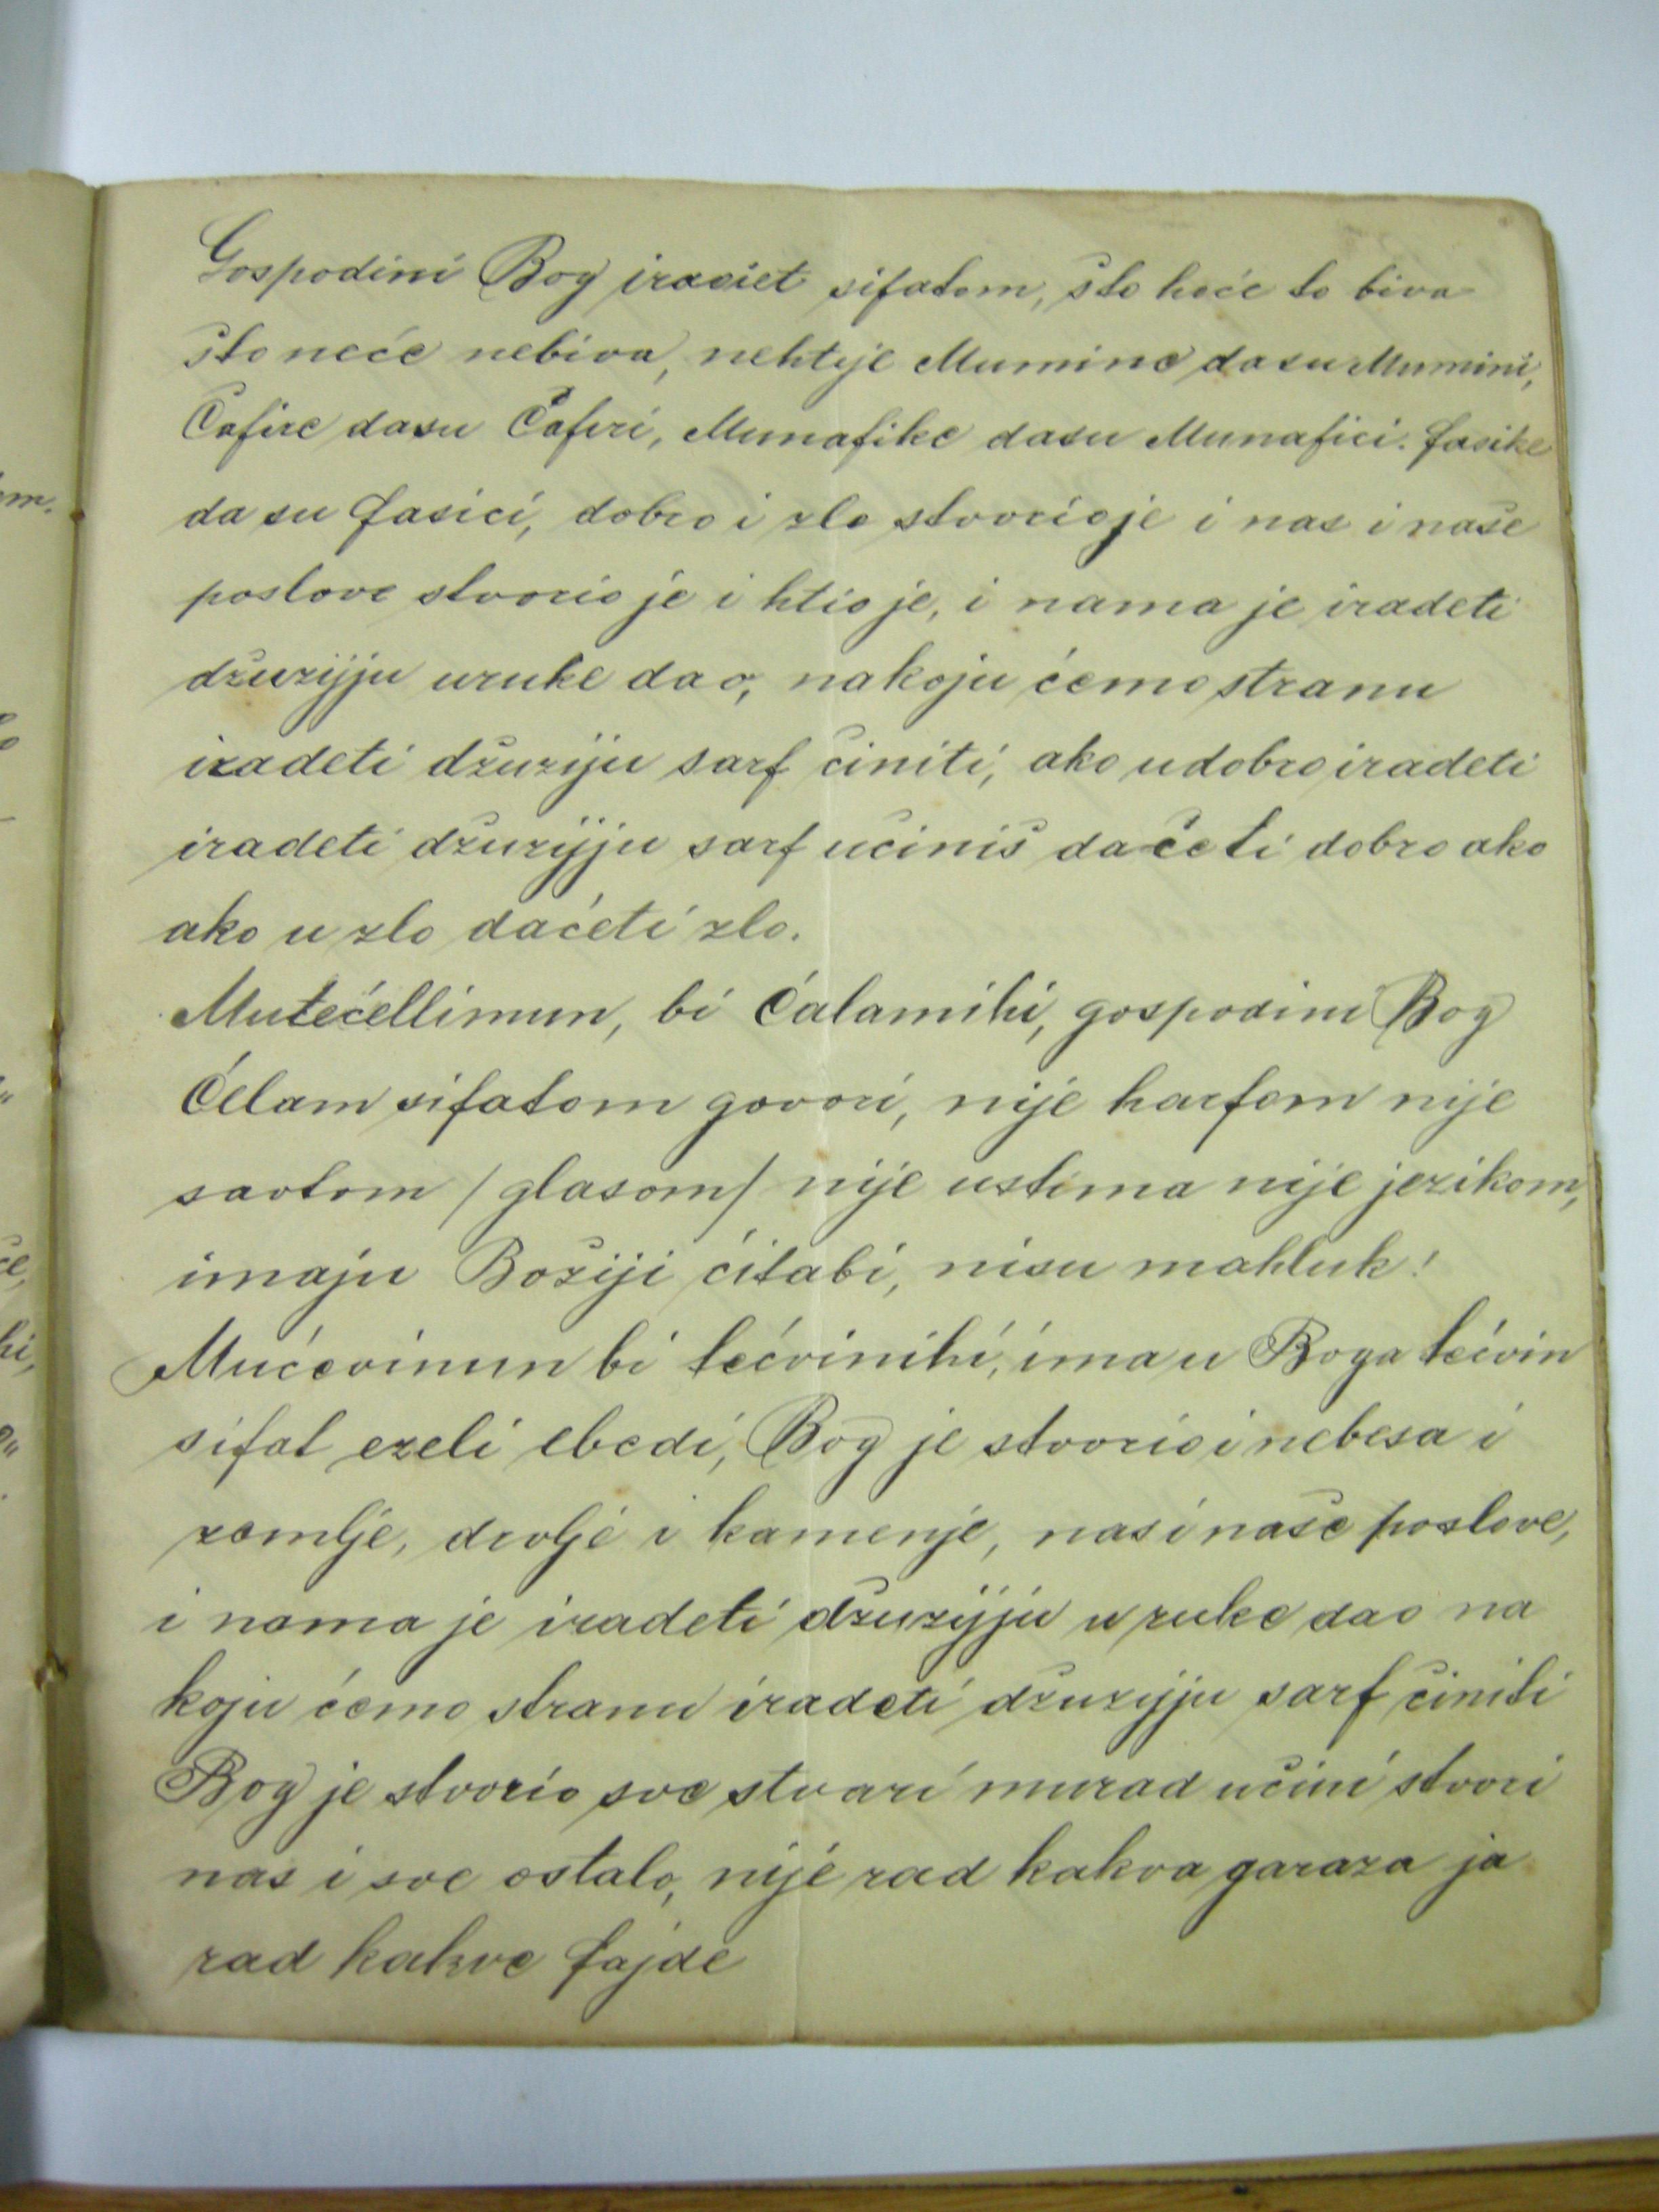 Gospodini Bog iradet sifatom, što hoće to biva
što neće nebiva, nehtije Mumine dasu Mumini,
Ćafire dasu Ćafiri, Munafike dasu Munafici. fasike
da su fasici, dobro i zlo stvorioje i nas i naše
poslove stvorio je i htio je, i nama je iradeti
džuzijju uruke dao, nakoju ćemo stranu
iradeti džuziju sarf činiti, ako udobro iradeti
iradeti džuzijju sarf učiniš daćeti dobro ako
ako u zlo daćeti zlo.
Mutećellimun, bi Ćalamihi, gospodini Bog
Ćelam sifatom govori, nije harfom nije
savtom /glasom/ nije ustima nije jezikom,
imaju Božiji ćitabi, nisu mahluk!
Mućevinun bi tećvinihi, ima u Boga tećvin
sifat ezeli ebedi, Bog je stvorio i nebesa i
zemlje, drvlje i kamenje, nas i naše poslove,
i nama je iradeti džuzijju u ruke dao na
koju ćemo stranu iradeti džuzijju sarf činiti
Bog je stvorio sve stvari murad učini stvori
nas i sve ostalo, nije rad kakva garaza ja
rad kakve fajde